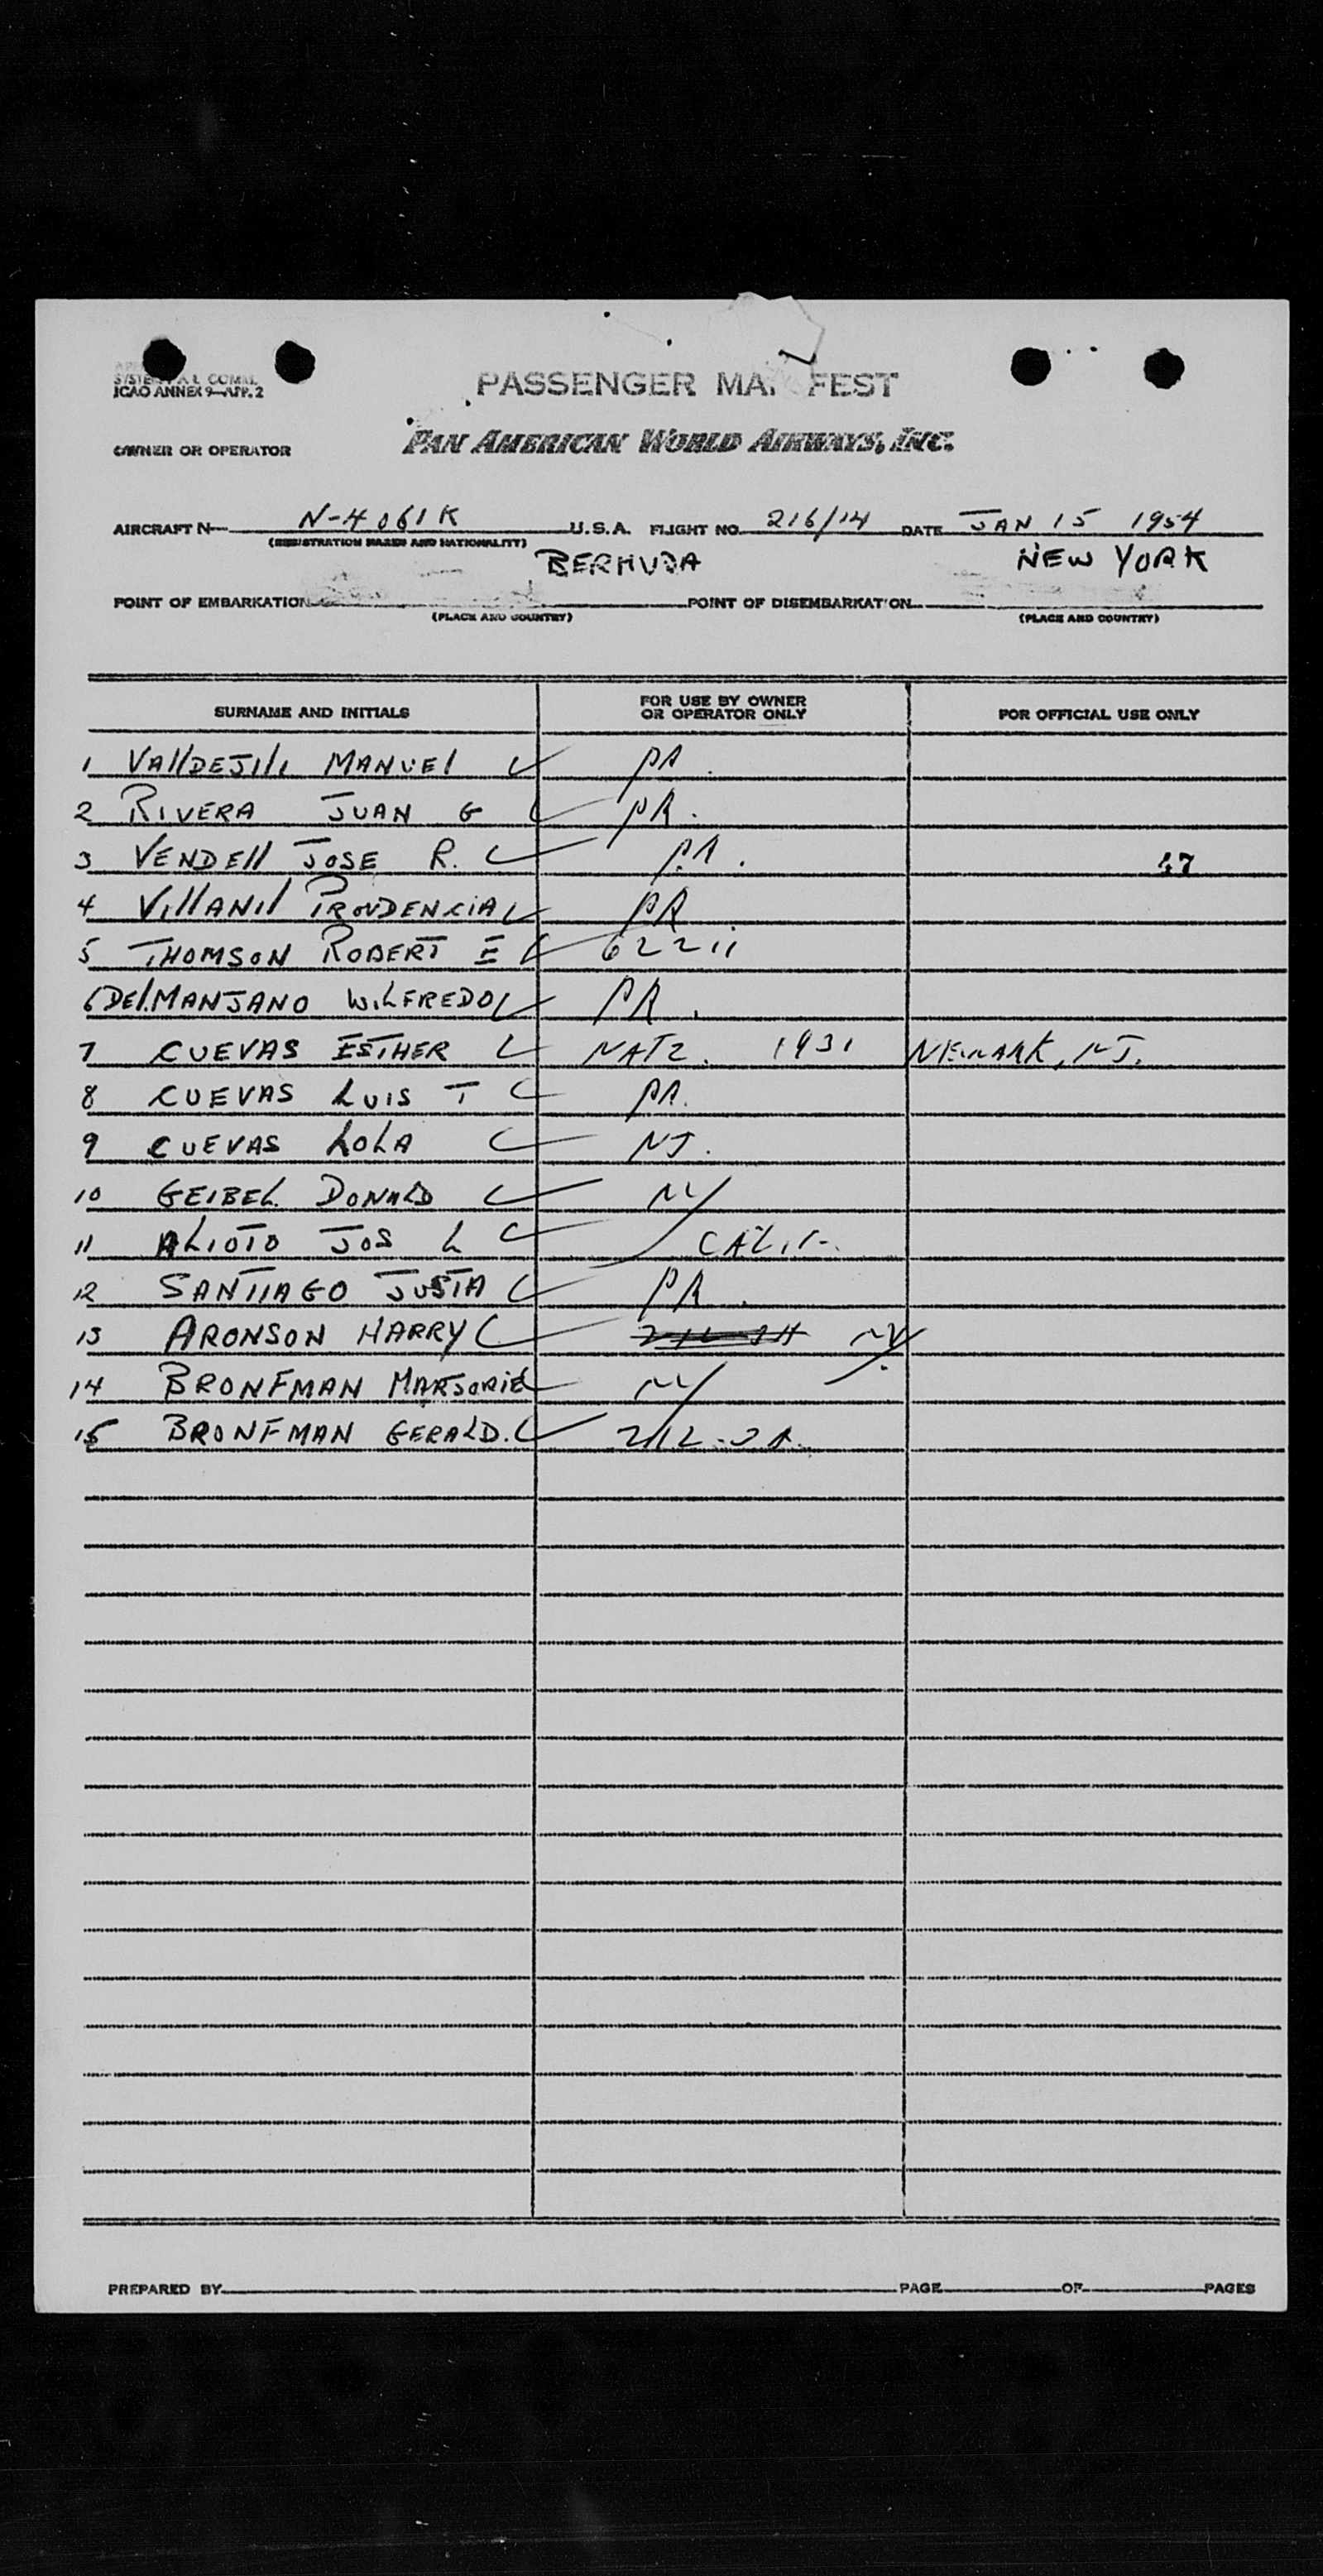 ICAO ANNEX 9—APP. 2
PASSENGER MA FEST
OWNER OR OPERATOR PAN AMERICAN WORLD AIRWAYS, INC.
AIRCRAFT N— N-4061K U.S.A. FLIGHT NO. 216/14 DATE JAN 15 1954
(REGISTRATION MARKS AND NATIONALITY)
BERMUDA NEW YORK
POINT OF EMBARKATION POINT OF DISEMBARKATION
(PLACE AND COUNTRY) (PLACE AND COUNTRY)
SURNAME AND INITIALS FOR USE BY OWNER OR OPERATOR ONLY FOR OFFICIAL USE ONLY
1 VAllDEJIli MANUEl PR.
2 RIVERA JUAN G PR.
3 VENDEll JOSE R. PR. 47
4 VillANil PROVDENCIA PR
5 THOMSON ROBERT E 62211
6 DEl.MANJANO WILFREDO PR.
7 CUEVAS ESTHER NATZ. 1931 NEWARK, NJ.
8 CUEVAS LUIS T PR.
9 CUEVAS LOLA NJ.
10 GEIBEL DONALD NY
11 ALIOTO JOS L CALIF.
12 SANTIAGO JUSTA PR.
13 ARONSON HARRY NY.
14 BRONFMAN MARJORIE NY
15 BRONFMAN GERALD.
PREPARED BY PAGE OF PAGES